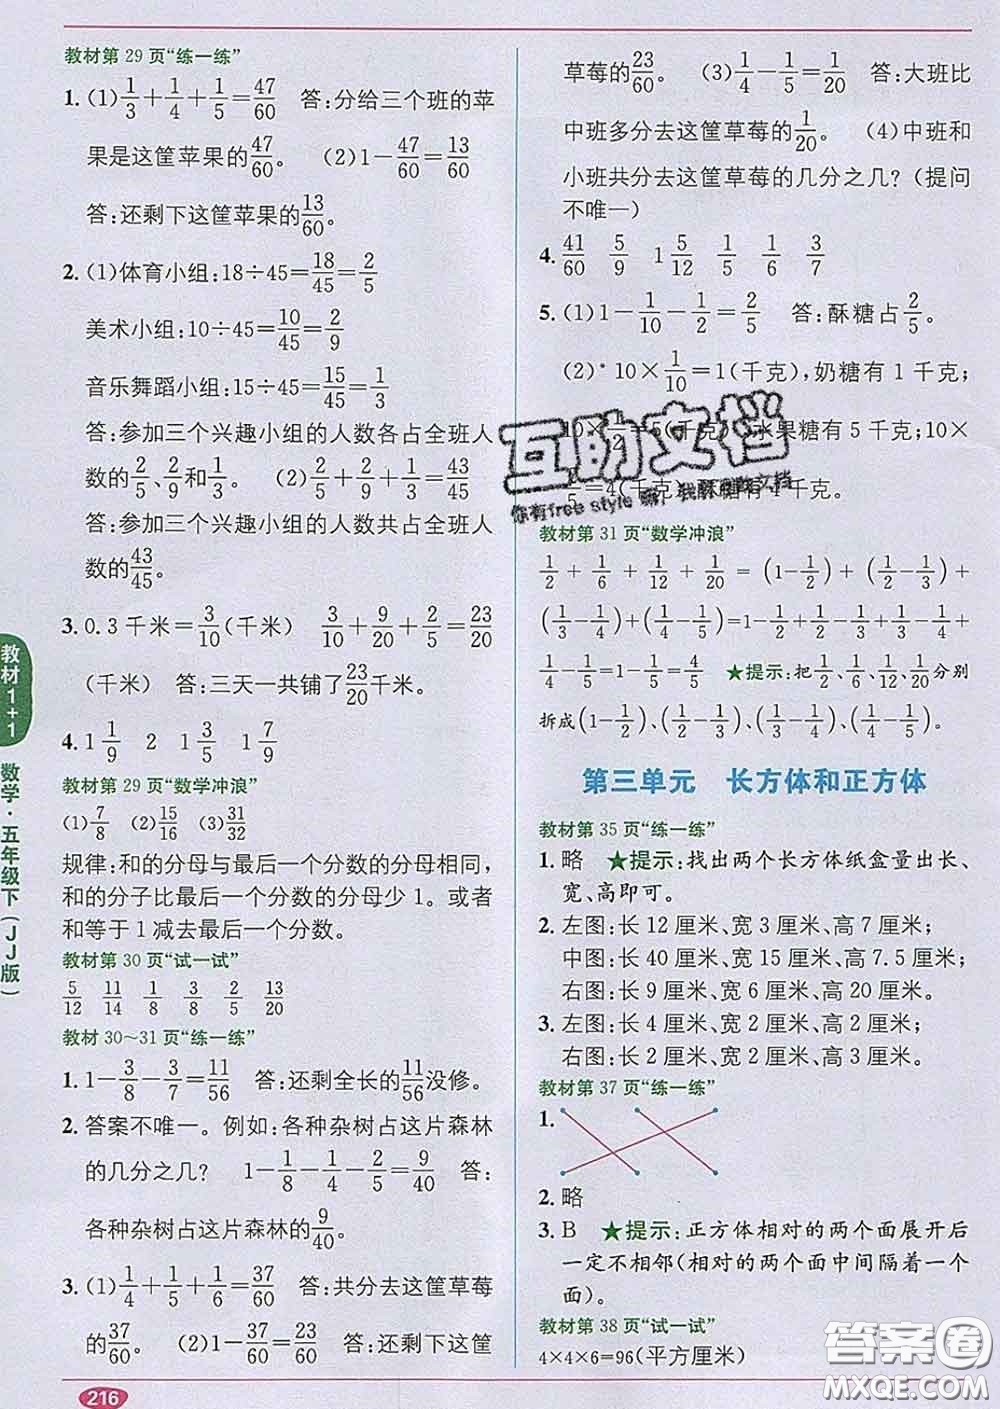 教材第 29 页“练一练”
1. (1) 1/3 + 1/4 + 1/5 = 47/60 答:分给三个班的苹
果是这筐苹果的 47/60。 (2) 1 - 47/60 = 13/60
答:还剩下这筐苹果的 13/60。
2. (1)体育小组:18÷45 = 18/45 = 2/5
美术小组:10÷45 = 10/45 = 2/9
音乐舞蹈小组:15÷45 = 15/45 = 1/3
答:参加三个兴趣小组的人数各占全班人
数的 2/5、2/9 和 1/3。 (2) 2/5 + 2/9 + 1/3 = 43/45
答:参加三个兴趣小组的人数共占全班人
数的 43/45。
3. 0.3 千米 = 3/10(千米) 3/10 + 9/20 + 2/5 = 23/20
(千米) 答:三天一共铺了 23/20 千米。
4. 1 1/9 2 1 3/5 1 7/9
教材第 29 页“数学冲浪”
(1) 7/8 (2) 15/16 (3) 31/32
规律:和的分母与最后一个分数的分母相同,
和的分子比最后一个分数的分母少 1。或者
和等于 1 减去最后一个分数。
教材第 30 页“试一试”
5/12 11/14 1/8 3/8 2/5 13/20
教材 30~31 页“练一练”
1. 1 - 3/8 - 3/7 = 11/56 答:还剩全长的 11/56 没修。
2. 答案不唯一。例如:各种杂树占这片森林
的几分之几? 1 - 1/8 - 1/4 - 2/5 = 9/40 答:
各种杂树占这片森林的 9/40。
3. (1) 1/4 + 1/5 + 1/6 = 37/60 答:共分去这筐草莓
的 37/60。 (2) 1 - 37/60 = 23/60 答:还剩下这筐
216
教材1+1 数学·五年级下(JJ版)
草莓的 23/60。 (3) 1/4 - 1/5 = 1/20 答:大班比
中班多分去这筐草莓的 1/20。 (4)中班和
小班共分去这筐草莓的几分之几?(提问
不唯一)
4. 41/60 5/9 1 5/12 5/12 1/6 3/7
5. (1) 1 - 1/10 - 1/2 = 2/5 答:酥糖占 2/5。
(2) 10× 1/10 = 1(千克),奶糖有 1 千克;
10× 1/2 = 5(千克),水果糖有 5 千克;10×
/5 = 4(千克),酥糖有 4 千克。
互助文档
教材第 31 页“数学冲浪”
1/2 + 1/6 + 1/12 + 1/20 = (1 - 1/2) + (1/2 - 1/3) +
(1/3 - 1/4) + (1/4 - 1/5) = 1 - 1/2 + 1/2 - 1/3 + 1/3 - 1/4 +
1/4 - 1/5 = 1 - 1/5 = 4/5 ★提示:把 1/2、1/6、1/12、1/20 分别
拆成 (1 - 1/2)、(1/2 - 1/3)、(1/3 - 1/4)、(1/4 - 1/5)。
第三单元 长方体和正方体
教材第 35 页“练一练”
1. 略 ★提示:找出两个长方体纸盒量出长、
宽、高即可。
2. 左图:长 12 厘米、宽 3 厘米、高 7 厘米;
中图:长 40 厘米、宽 15 厘米、高 7 厘米;
右图:长 9 厘米、宽 6 厘米、高 20 厘米。
3. 左图:长 4 厘米、宽 2 厘米、高 2 厘米;
右图:长 2 厘米、宽 2 厘米、高 2 厘米。
教材第 37 页“练一练”
1.
2. 略
3. B ★提示:正方体相对的两个面展开后
一定不相邻(相对的两个面中间隔着一个
面)。
教材第 38 页“试一试”
4×4×6=96(平方厘米)
答案圈
MXQE.COM